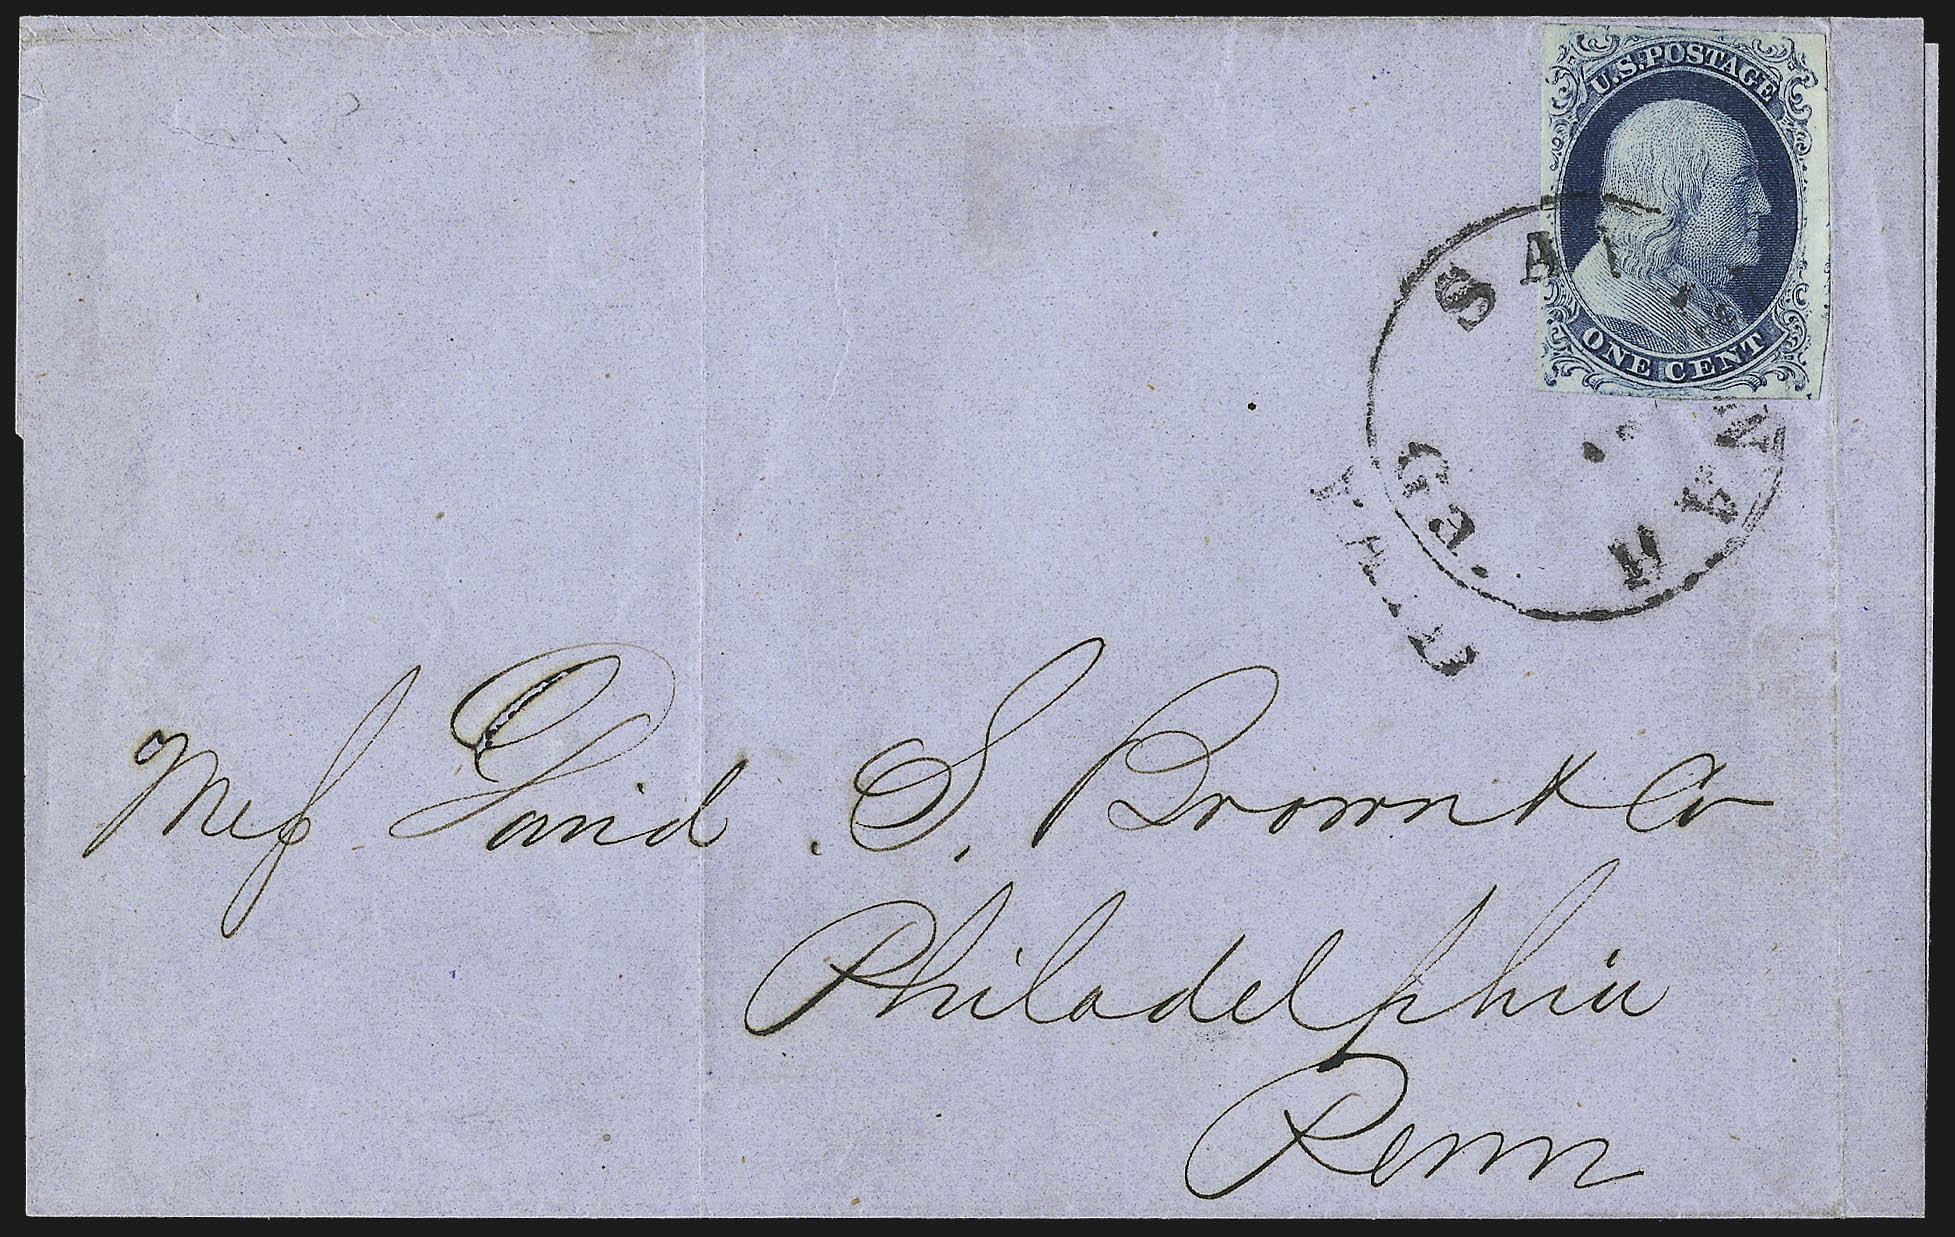 U.S. POSTAGE
ONE CENT
SAVANNAH
Ga.
PAID
Mess David . S. Brown & Co
Philadelphia
Penn